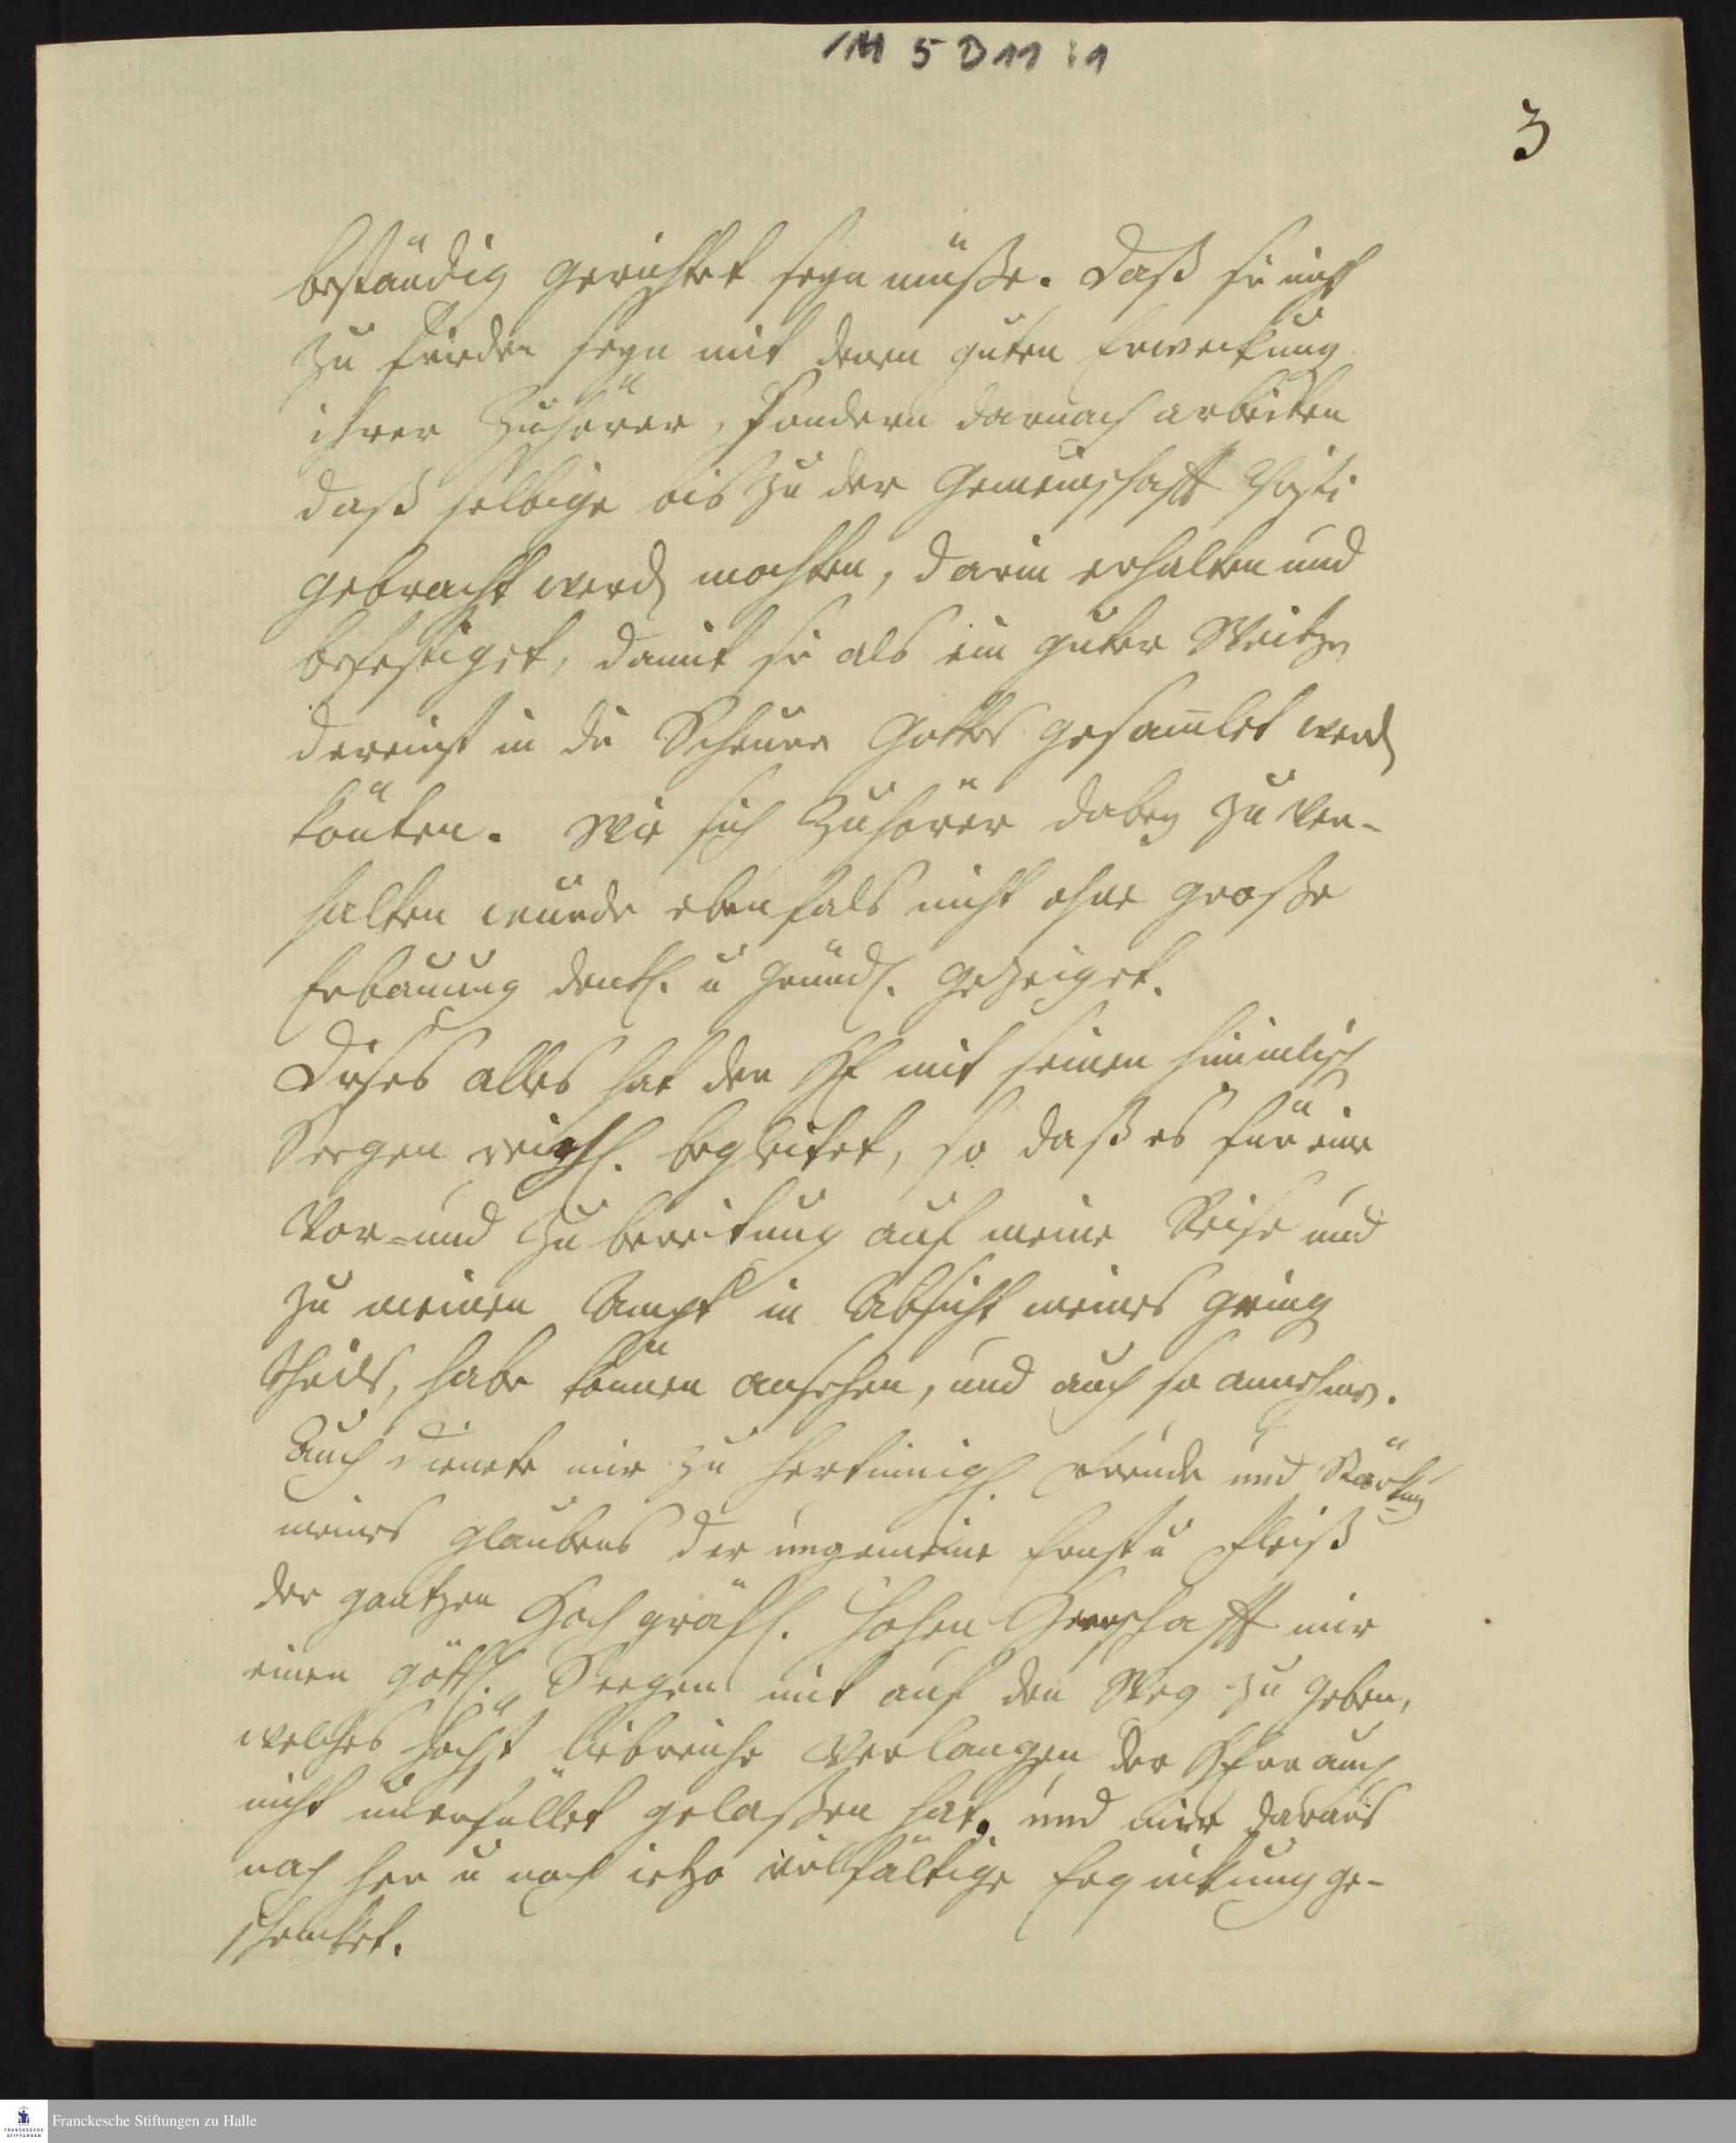 1M 5 D11 : 1
3
beständig gerichtet seyn müße. Daß sie nicht
zu frieden seyn mit denen guten Erweckung
ihrer Zuhörer, sondern darnach arbeiten
daß selbige bis zu der Gemeinschafft Christi
gebracht werd mochten, darin erhalten und
befestiget, damit sie als ein guter Weitzen
dereinst in die Scheuer Gottes gesamlet werd
könten. Wie sich Zuhörer dabey zu ver-
halten wurde ebenfals nicht ohne große
Erbauung deutl. u gründl. gezeiget.
Dieses alles hat der HE mit seinen himmlisch
Seegen reichl. begleitet, so daß es für eine
Vor- und Zubereitung auf meine Reise und
zu meinen Ampt in Absicht meines gering
theils, habe können ansehen, und auch so annehmen.
Auch dienete mir zu hertzinnigl. Freude und Stärkung
meines glaubens der ungemeine Ernst u Fleiß
der gantzen Hoch gräfl. hohen Herrschafft mir
einen göttl. Seegen mit auf den Weg zu geben,
welches höchst liebreiche Verlangen der HErr auch
nicht unerfüllet gelaßen hat, und mir daraus
nach her u noch ietzo vielfältige Erquickung ge-
schencket.
Franckesche Stiftungen zu Halle
FRANCKESCHE
STIFTUNGEN